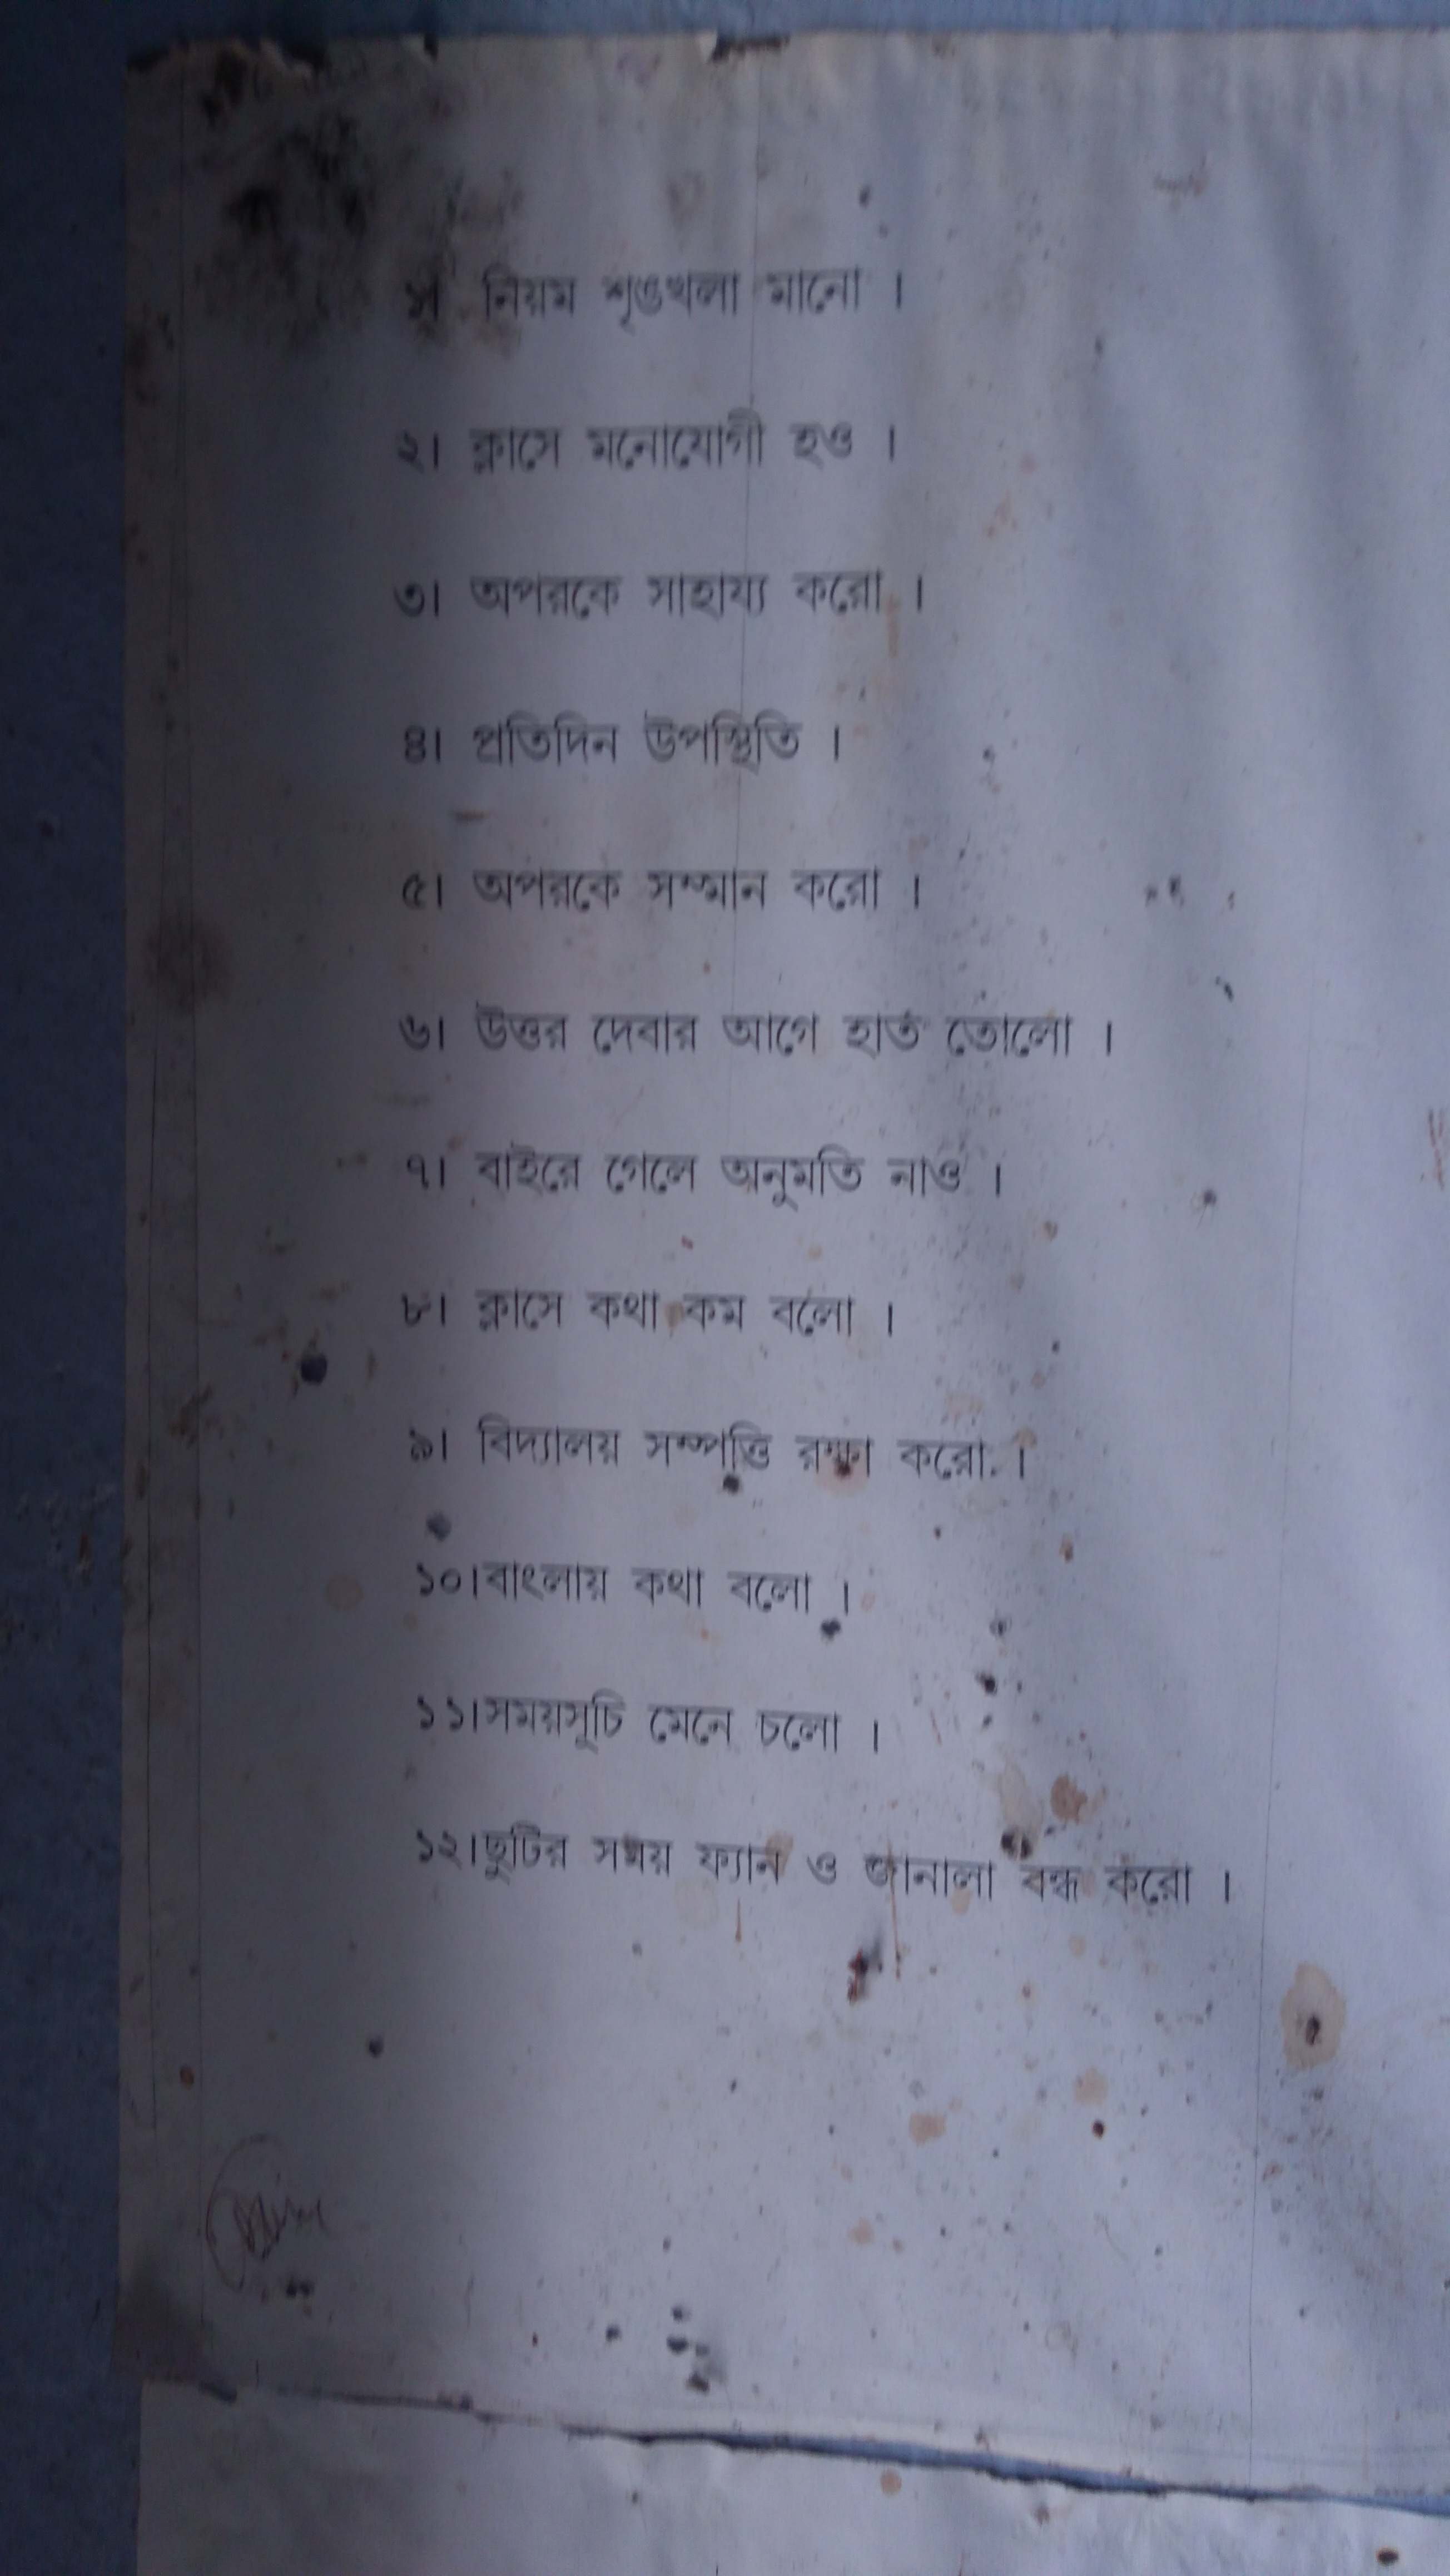 ১। নিয়ম শৃঙখলা মানো ।
২। ক্লাসে মনোযোগী হও ।
৩। অপরকে সাহায্য করো ।
৪। প্রতিদিন উপস্থিতি ।
৫। অপরকে সম্মান করো ।
৬। উত্তর দেবার আগে হাত তোলো ।
৭। বাইরে গেলে অনুমতি নাও ।
৮। ক্লাসে কথা কম বলো ।
৯। বিদ্যালয় সম্পত্তি রক্ষা করো ।
১০।বাংলায় কথা বলো ।
১১।সময়সূচি মেনে চলো ।
১২।ছুটির সময় ফ্যান ও জানালা বন্ধ করো ।